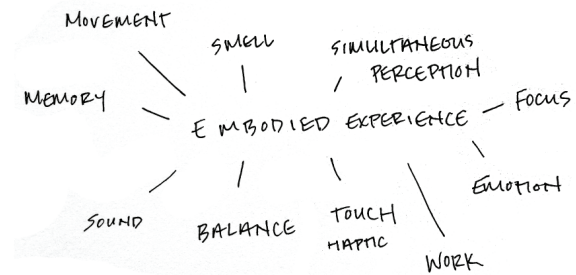 MOVEMENT
SMELL
SIMULTANEOUS
PERCEPTION
MEMORY
FOCUS
EMBODIED EXPERIENCE
EMOTION
SOUND
BALANCE
TOUCH
HAPTIC
WORK